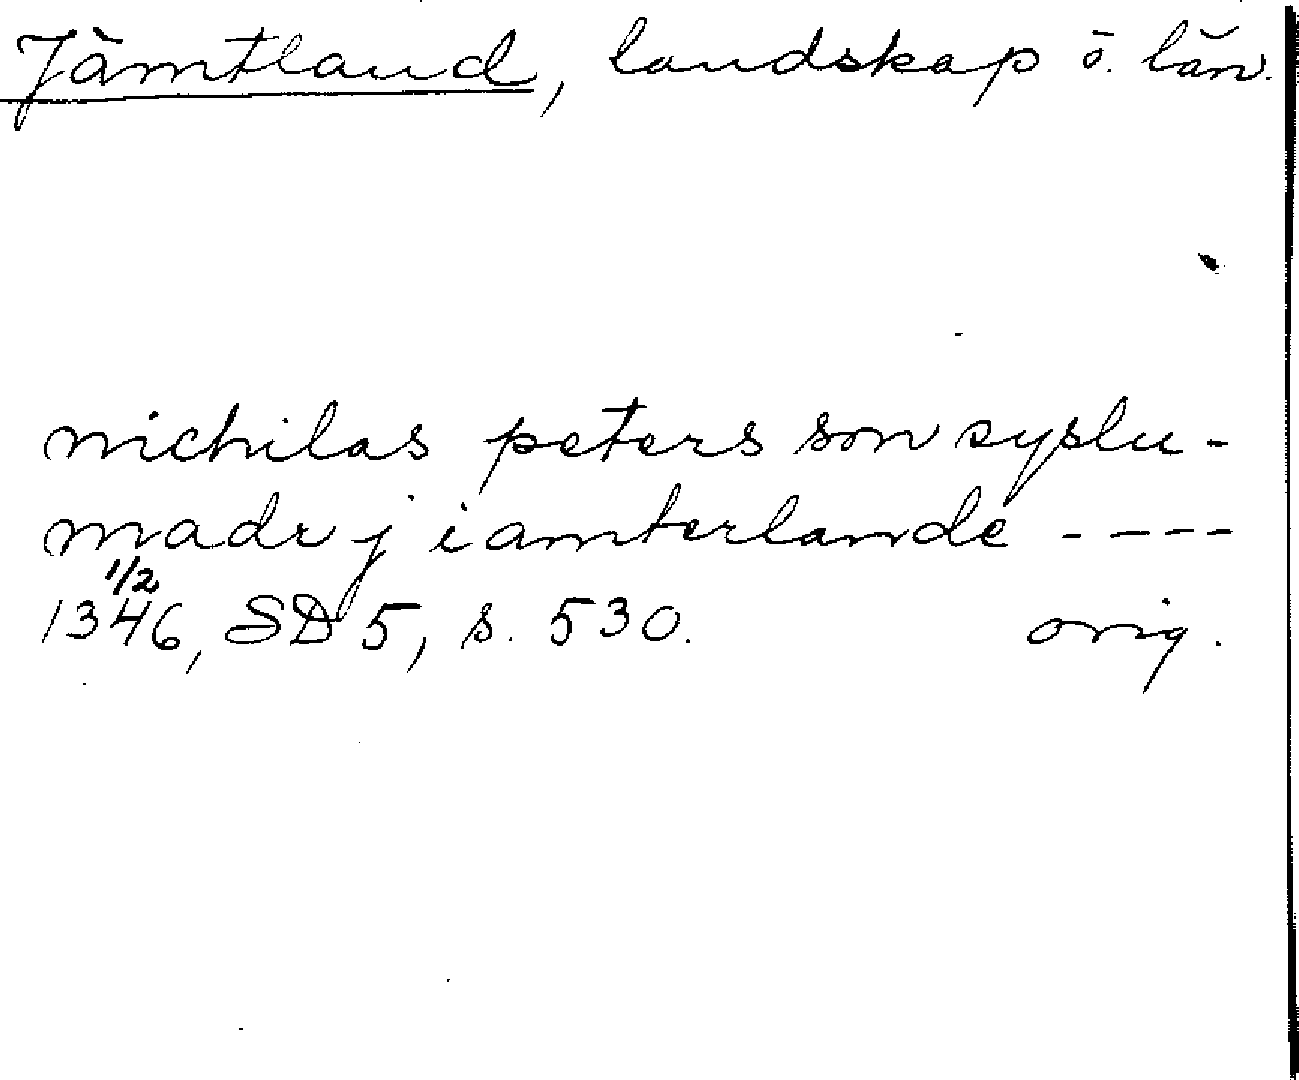 Jämtland, landskap o. län.
nichilas peters son syslu-
madr j iamterlande ----
1/2
1346, SD 5, s. 530. orig.